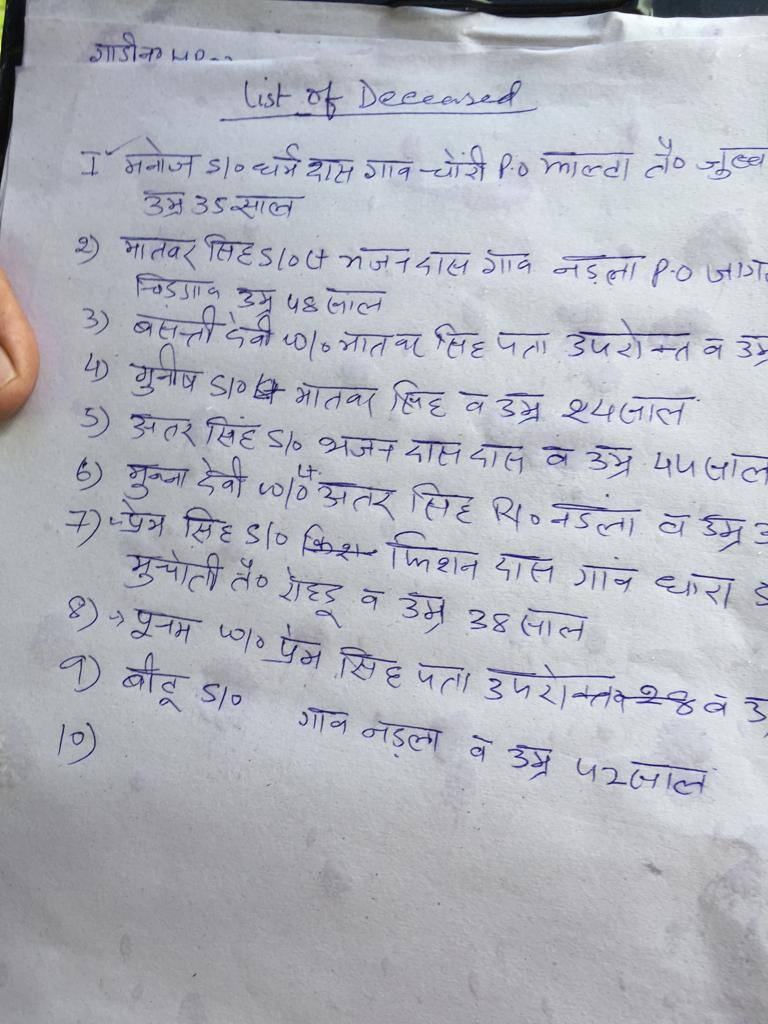 गाडी न० HP..
List of Deceased
1 मनोज S/o धर्म दास गाव चोंरी P.O झाल्टा तै० जुब्ब
उम्र 35 साल
2) मातवर सिंह S/o भजन दास गाव नडला P.O जांग
चिडगाव उम्र 48 साल
3) बसन्ती देवी w/o मातवर सिंह पता उपरोक्त व उम्र
4) मुनीष S/o मातवर सिंह व उम्र 24 साल
5) अतर सिंह S/o भजन दास दास व उम्र 44 साल
6) मुन्ना देवी w/o अतर सिंह R/o नडला व उम्र
7) प्रेम सिंह S/o किशन दास गाव धारा
मुचोती तै० रोहडू व उम्र 38 साल
8) → पूनम w/o प्रेम सिंह पता उपरोक्त व 28 व उ
9) बीटू S/o गाव नडला व उम्र 42 साल
10)